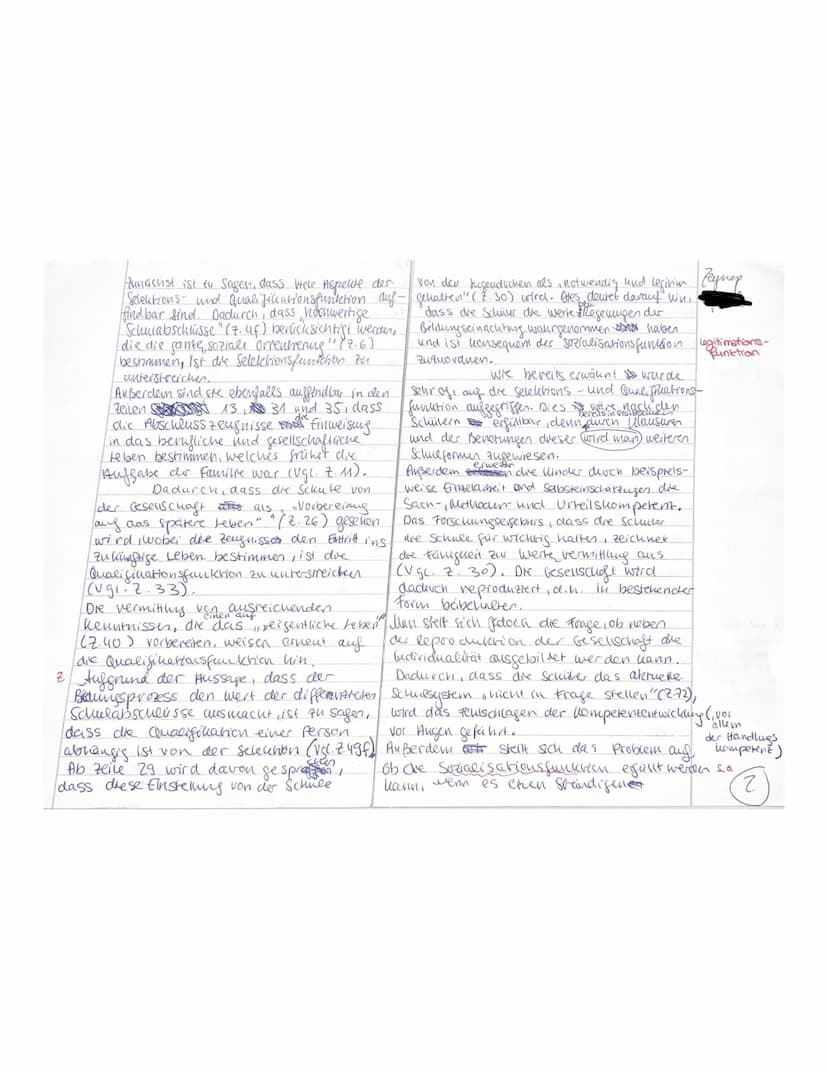 Zunächst ist zu sagen, dass viele Aspekte der
Selektions- und Qualifikationsfunktion auf-
findbar sind. Dadurch, dass „hochwertige
Schulabschlüsse" (Z. 4f) berücksichtigt werden,
die die ganze „soziale Orientierung" (Z. 6)
bestimmen, ist die Selektionsfunktion zu
unterstreichen.
Außerdem sind sie ebenfalls auffindbar in den
Zeilen 13, 31 und 35, dass
die Abschlusszeugnisse die Einweisung
in das berufliche und gesellschaftliche
Leben bestimmen, welches früher die
Aufgabe der Familie war (Vgl. Z. 11).
Dadurch, dass die Schule von
der Gesellschaft als „Vorbereitung
auf das spätere Leben" (Z. 26) gesehen
wird, wobei die Zeugnisse den Eintritt ins
zukünftige Leben bestimmen, ist die
Qualifikationsfunktion zu unterstreichen
(Vgl. Z. 33).
Die Vermittlung von ausreichenden
Kenntnissen, die einen auf das „eigentliche Leben"
(Z. 40) vorbereiten, weisen erneut auf
die Qualifikationsfunktion hin.
Z Aufgrund der Aussage, dass der
Bildungsprozess den Wert der differenzierten
Schulabschlüsse ausmacht, ist zu sagen,
dass die Qualifikation einer Person
abhängig ist von der Selektion (Vgl. Z. 49f)
Ab Zeile 29 wird davon gesprochen,
dass diese Einstellung von der Schule
von den Jugendlichen als „notwendig und legitim
gehalten" (Z. 30) wird. Dies deutet darauf hin,
dass die Schüler die Werte
Bildungseinrichtung wahrgenommen haben
und ist konsequent der Sozialisationsfunktion
zuzuordnen.
Wie bereits erwähnt wurde
sehr oft auf die Selektions- und Qualifikations-
funktion aufgegriffen. Dies wäre nach den
Schülern erfüllbar, denn durch Klausuren
und der Benotungen dieser wird man weiteren
Schulformen zugewiesen.
Außerdem erweitern die Kinder durch beispiels-
weise Einzelarbeit und Selbsteinschätzungen die
Sach-, Methoden- und Urteilskompetenz.
Das Forschungsergebnis, dass die Schüler
die Schule für wichtig halten, zeichnet
die Fähigkeit zur Wertevermittlung aus
(Vgl. Z. 30). Die Gesellschaft wird
dadurch reproduziert, d.h. in bestehender
Form beibehalten.
Man stellt sich jedoch die Frage, ob neben
der Reproduktion der Gesellschaft die
Individualität ausgebildet werden kann.
Dadurch, dass die Schüler das aktuelle
Schulsystem „nicht in Frage stellen" (Z. 72),
wird das Fehlschlagen der Kompetenzentwicklung (vor
allem
der Handlungs
kompetenz)
vor Augen geführt.
Außerdem stellt sich das Problem auf,
ob die Sozialisationsfunktion erfüllt werden s.o
kann, wenn es einen ständigen
Zeynep
Legitimations-
funktion
2